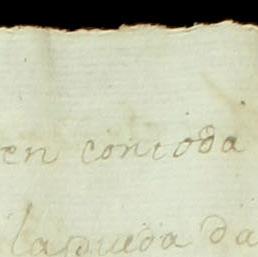 en con toda
la pueda da